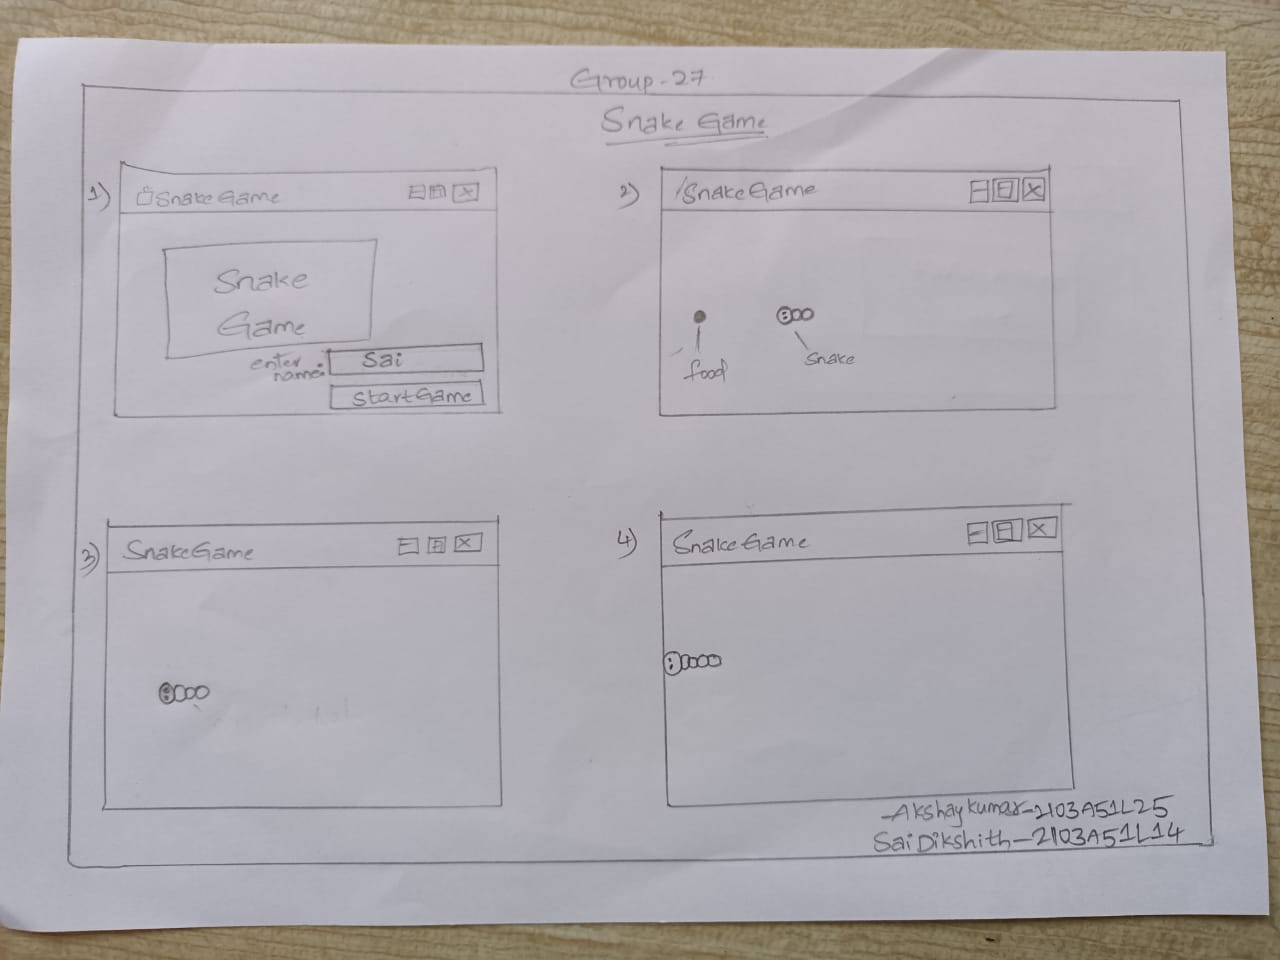 Group-27
Snake Game
1)
Snake Game
Snake
Game
enter
name:
Sai
Start Game
2)
Snake Game
food
Snake
3)
Snake Game
4)
Snake Game
-Akshaykumar-2103A51L25
Sai Dikshith-2103A51L14